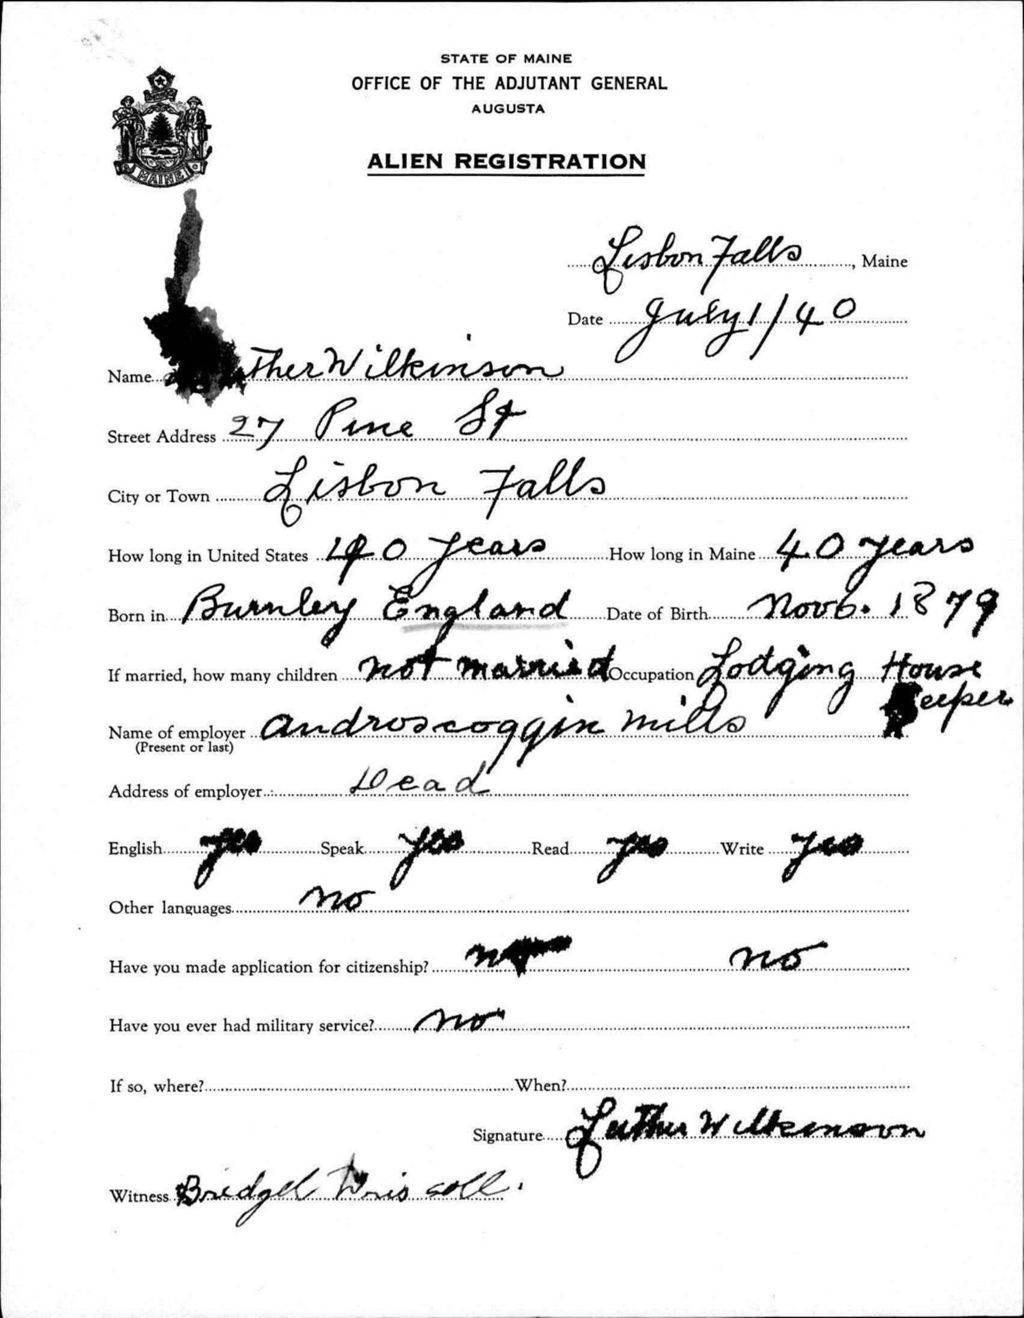 STATE OF MAINE
OFFICE OF THE ADJUTANT GENERAL
AUGUSTA
MAINE
ALIEN REGISTRATION
Lisbon Falls, Maine
Date July 1/40
Name ther Wilkinson
Street Address 27 Pine St
City or Town Lisbon Falls
How long in United States 40 years How long in Maine 40 years
Born in Burnley England Date of Birth Nov 6. 1879
If married, how many children not married Occupation Lodging House
Keeper
Name of employer Androscoggin Mills
(Present or last)
Address of employer Dead
English yes Speak yes Read yes Write yes
Other languages no
Have you made application for citizenship? no
Have you ever had military service? no
If so, where? When?
Signature Luther Wilkinson
Witness Bridget Driscoll.